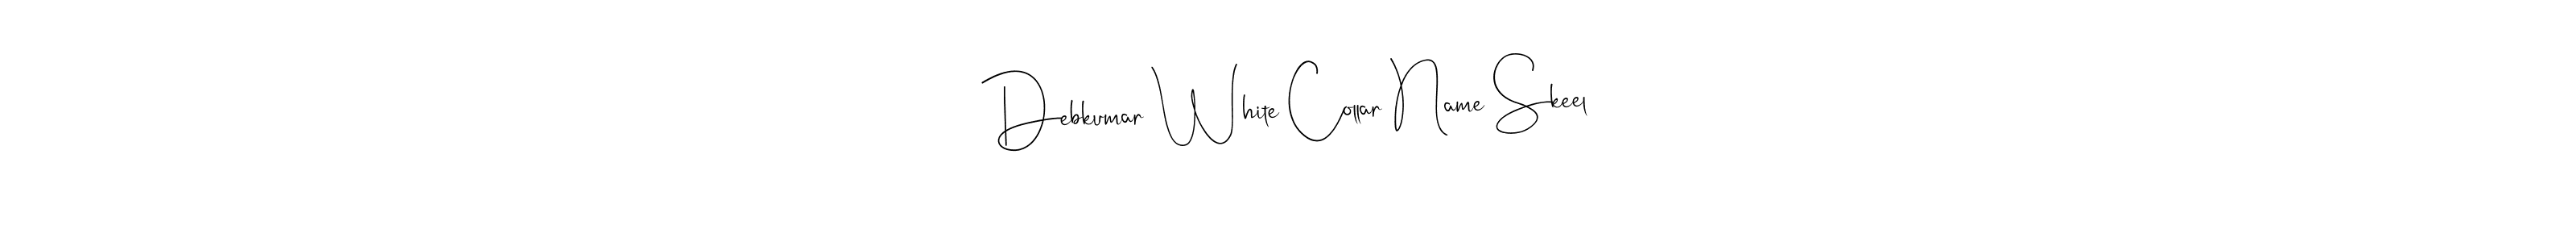 Debkumar White Collar Name Skeel